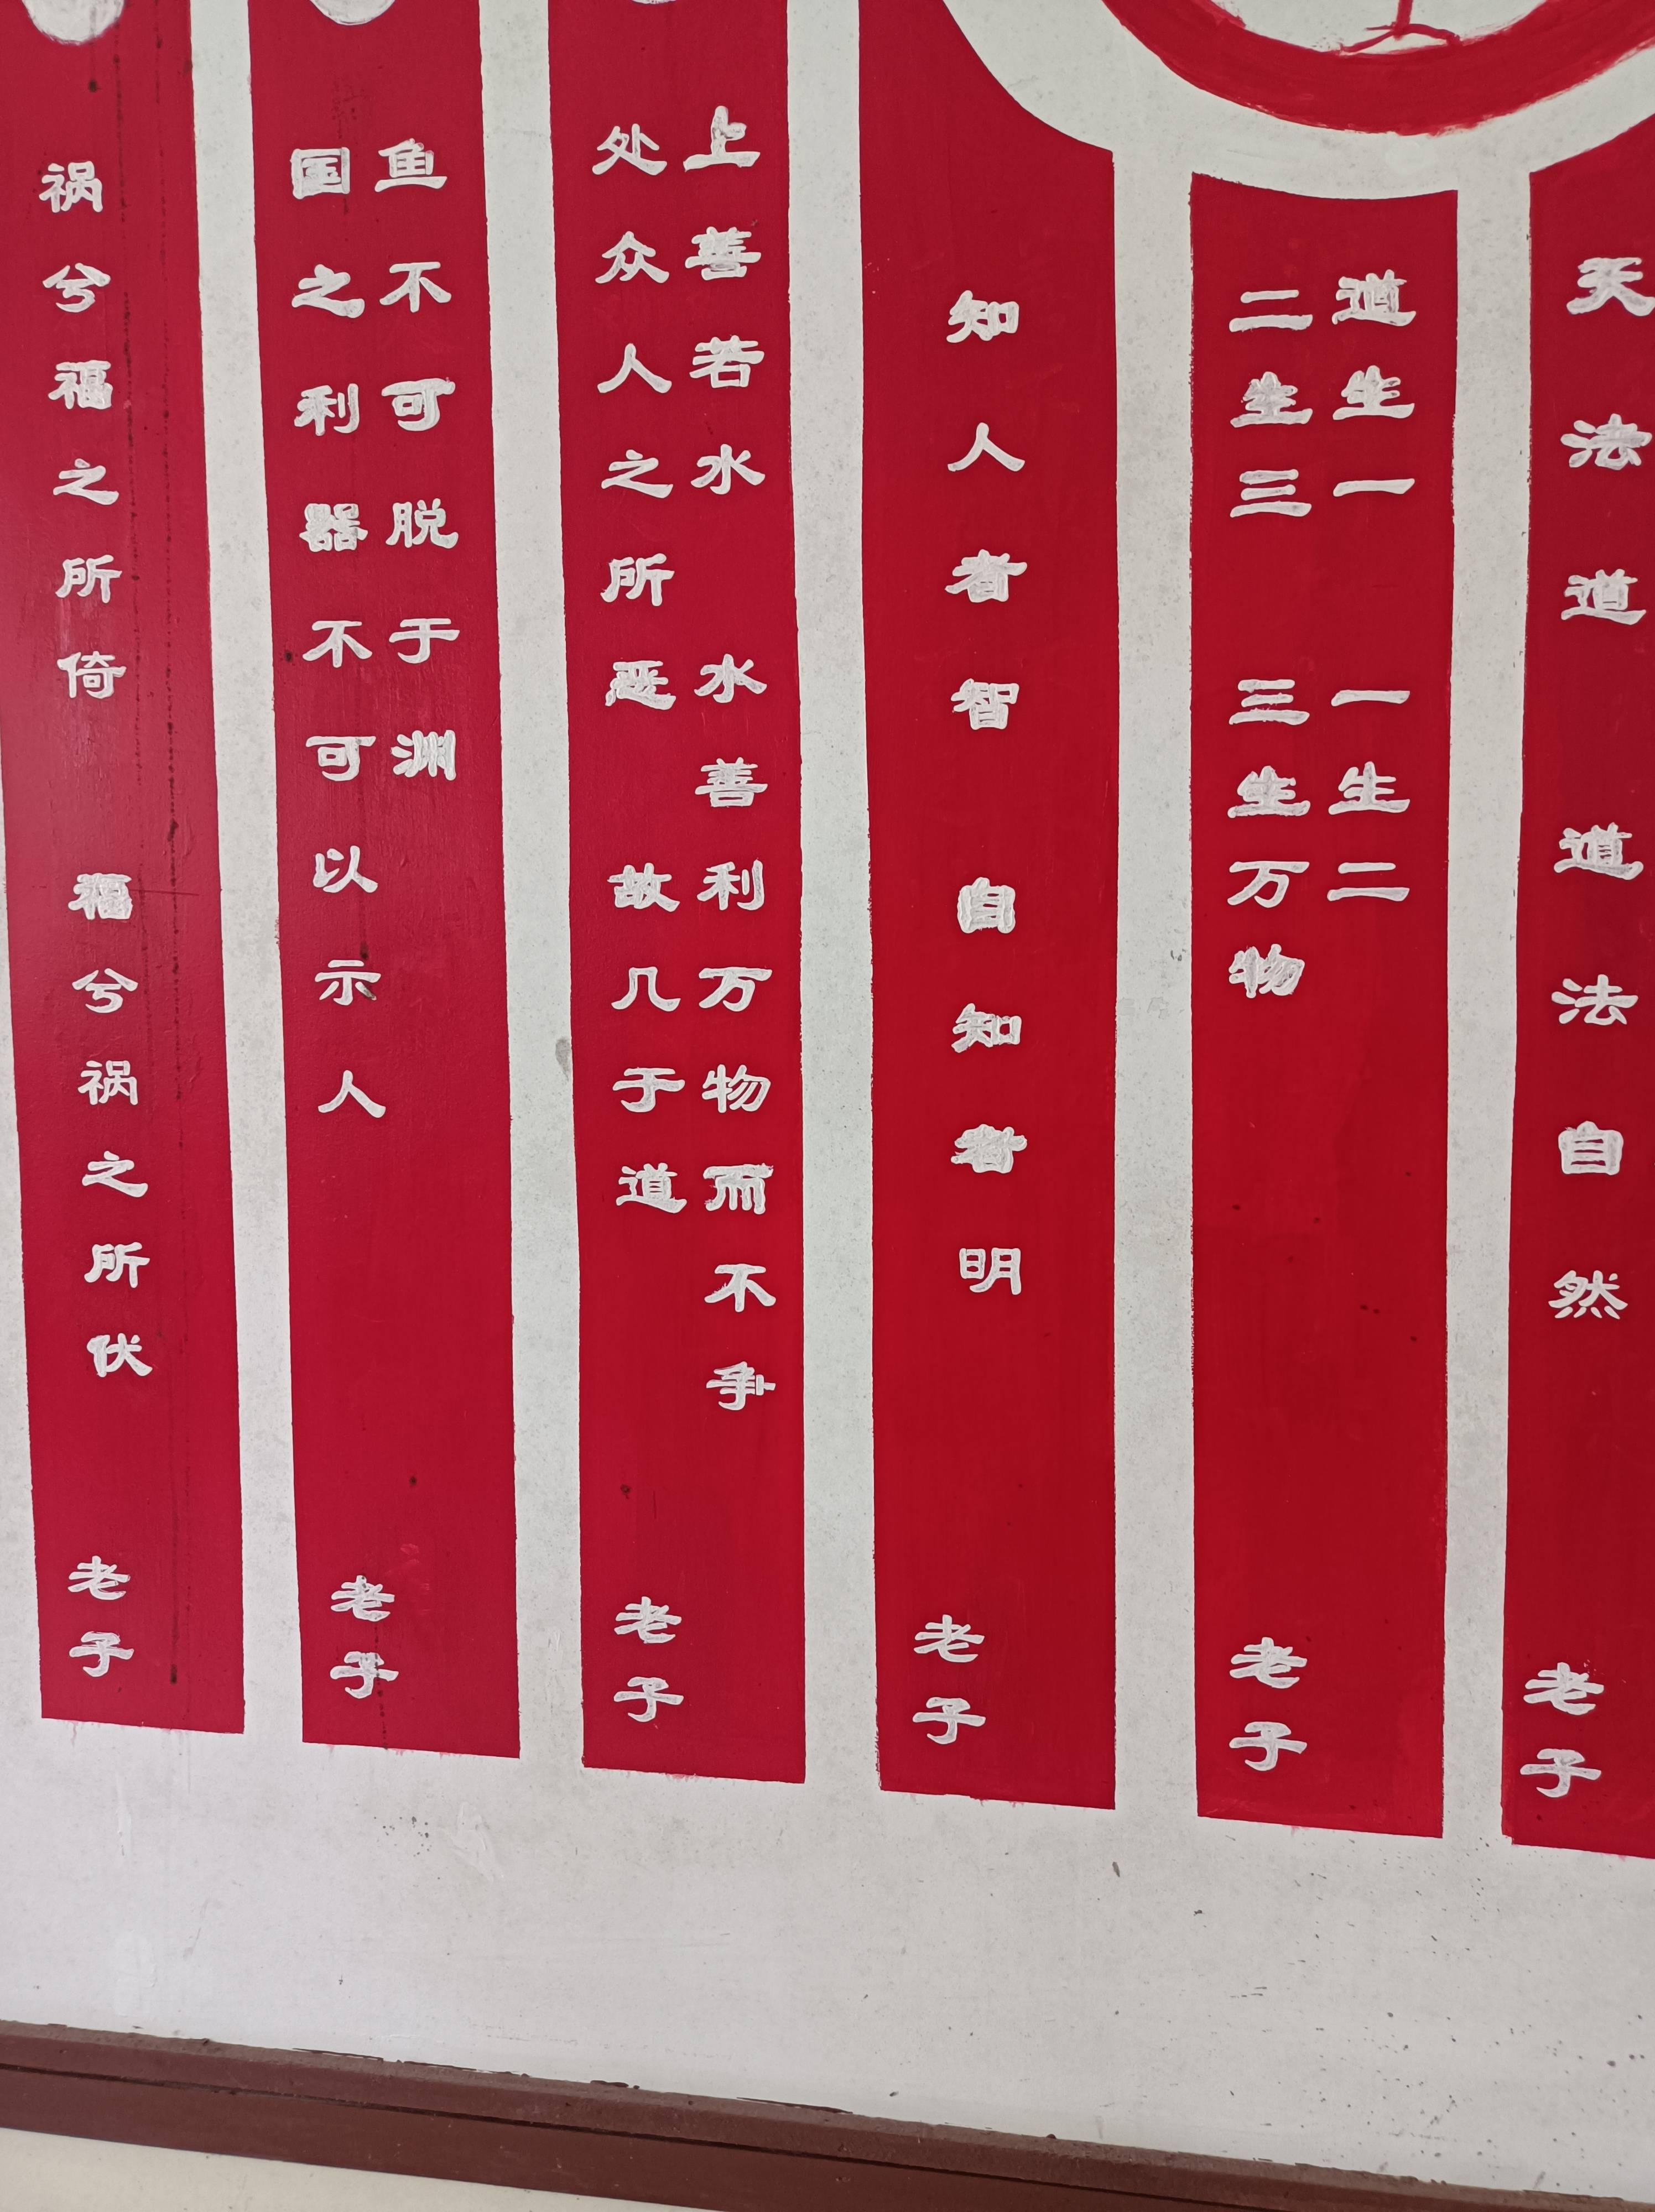 天法道 道法自然
老子
道生一 一生二
二生三 三生万物
老子
知人者智 自知者明
老子
上善若水 水善利万物而不争
处众人之所恶 故几于道
老子
鱼不可脱于渊
国之利器不可以示人
老子
祸兮福之所倚 福兮祸之所伏
老子